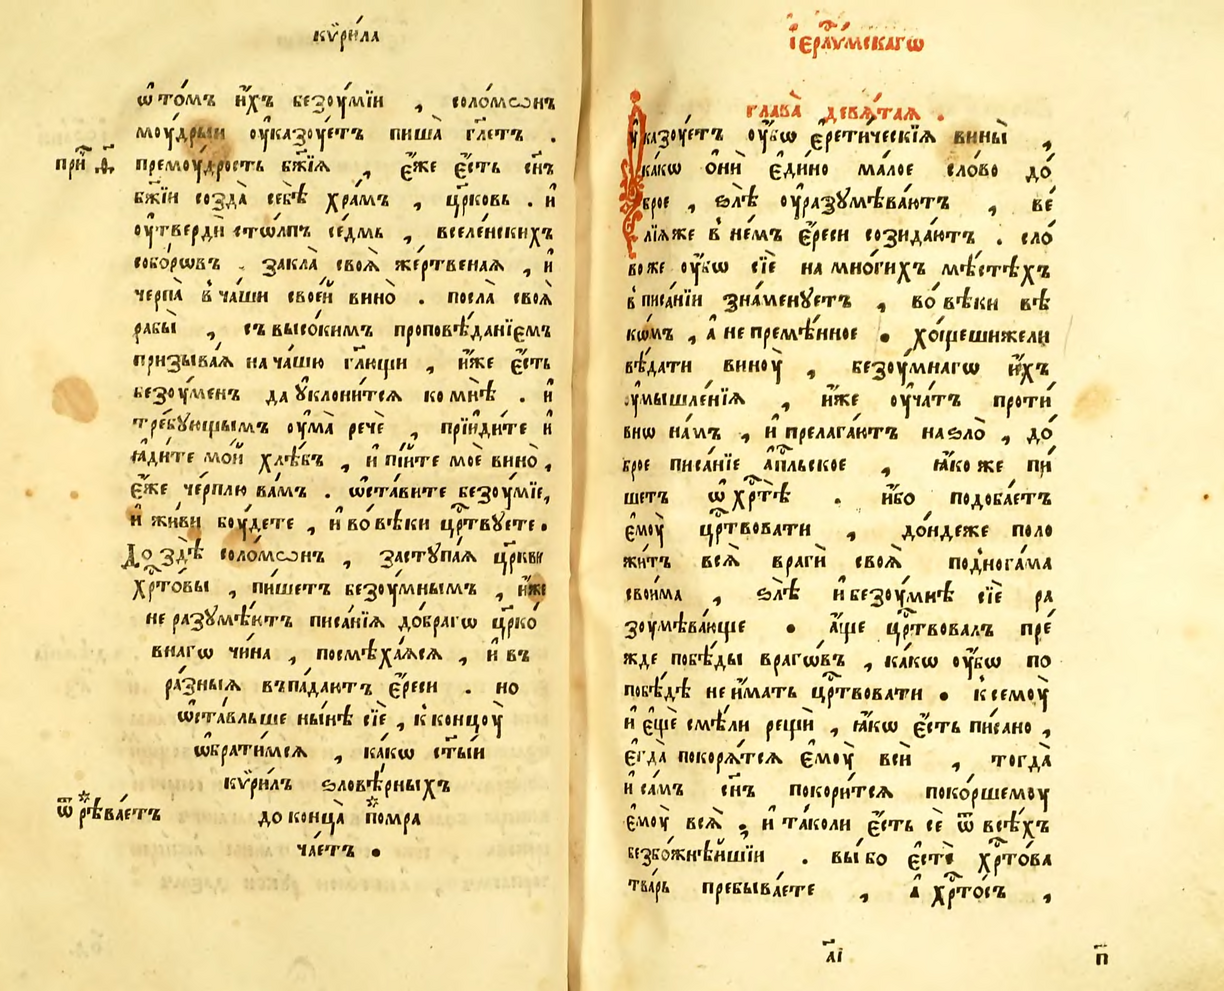 кѷри́ла
ѡ҆ то́мъ и҆́хъ безѹ́мїи , соло́мѡнъ
моу́дрыи оу҆казоу́етъ пиша̀ гл҃етъ .
при́т҃ ѳ҃. премоу́дрость бж҃їѧ , є҆́же є҆́сть сн҃ъ
бж҃їи созда̀ себѣ̀ хра́мъ , цр҃ковь . и҆
оу҆твердѝ стѡ́лпъ се́дмь , вселе́нскихъ
собо́рѡвъ . закла̀ своѧ̀ же́ртвенаѧ , и҆
черпа̀ в҆ ча́ши свое́й вино̀ . посла̀ своѧ̀
рабы̀ , съ высо́кимъ проповѣ́данїемъ
призыва́ѧ на ча́шю гл҃ющи , и҆́же є҆́сть
безоу́менъ да ꙋ҆клони́тсѧ ко мнѣ̀ . и҆
тре́бꙋющымъ оу҆ма̀ речѐ , прїиди́те и҆
ꙗ҆ди́те мо́й хлѣ́бъ , и҆ пі́йте моѐ вино̀ ,
є҆́же че́рплю ва́мъ . ѡ҆ста́вите безоу́мїе,
и҆ жи́ви боу́дете , и҆ во́ вѣки црⷭ҇твꙋете .
До здѣ̀ соло́мѡнъ , застꙋпа́ѧ цр҃кви
хрⷭ҇то́вы , пи́шетъ безоу́мнымъ , и҆́же
не разꙋмѣ́ютъ писа́нїѧ до́брагѡ цр҃ко́
внагѡ чи́на , посмѣха́ѧсѧ , и҆ въ
ра́зныѧ въпа́даютъ є҆́реси . но
ѡ҆ста́вльше ны́нѣ сїѐ , к҆ концоу̀
ѡ҆брати́мсѧ , ка́кѡ ст҃ы́й
кѷри́лъ ѕловѣ́рныхъ
ѿ рѣва́етъ до конца̀ помра
ча́етъ .
і҆ерⷭ҇ли́мскагѡ
глава̀ девѧ́таѧ .
ꙋ҆казоу́етъ оу҆́бѡ є҆рети́ческїѧ вины̀ ,
ка́кѡ ѻ҆нѝ є҆ди́но ма́лое сло́во до́
брое , ѕлѣ̀ оу҆разꙋмѣва́ютъ , ве́
лїѧ же в҆ не́мъ є҆́реси созида́ютъ . сло́
во же оу҆́бѡ сїѐ на мно́гихъ мѣ́стѣхъ
в҆ писа́нїи зна́менꙋетъ , во́ вѣки вѣ
кѡ́мъ , а҆ не премѣ́нное . хо́щеши же ли
вѣ́дати виноу̀ , безоу́мнагѡ и҆́хъ
ꙋ҆мышле́нїѧ , и҆́же оу҆ча́тъ проти́
внѡ на́мъ , и҆ прелага́ютъ на ѕло̀ , до́
брое писа́нїе а҆пⷭ҇льское , ꙗ҆́ко же пи́
шетъ ѡ҆ хрⷭ҇тѣ̀ . и҆́бо подоба́етъ
є҆моу̀ црⷭ҇твовати , до́ндеже поло
жи́тъ всѧ̀ врагѝ своѧ̀ под̾нога́ма
свои́ма , ѕлѣ̀ и҆ безоу́мнѣ сїѐ ра
зоумѣва́юще . а҆́ще црⷭ҇твовалъ пре́
жде побѣ́ды врагѡ́въ , ка́кѡ оу҆́бѡ по
побѣ́дѣ не и҆́мать црⷭ҇твовати . к҆ семоу̀
и҆ є҆щѐ смѣ́ли рещѝ , ꙗ҆́кѡ є҆́сть писано ,
є҆гда̀ покорѧ́тсѧ є҆моу̀ всѝ , тогда̀
и҆ са́мъ сн҃ъ покори́тсѧ поко́ршемоу
є҆моу̀ всѧ̀ . и҆ та́ко ли є҆́сть сѐ ѿ всѣ́хъ
безбо́жнѣйшїи . вы́ бо є҆стѐ хрⷭ҇то́ва
тва́рь пребыва́ете , а҆ хрⷭ҇то́съ ,
а҃і п҃